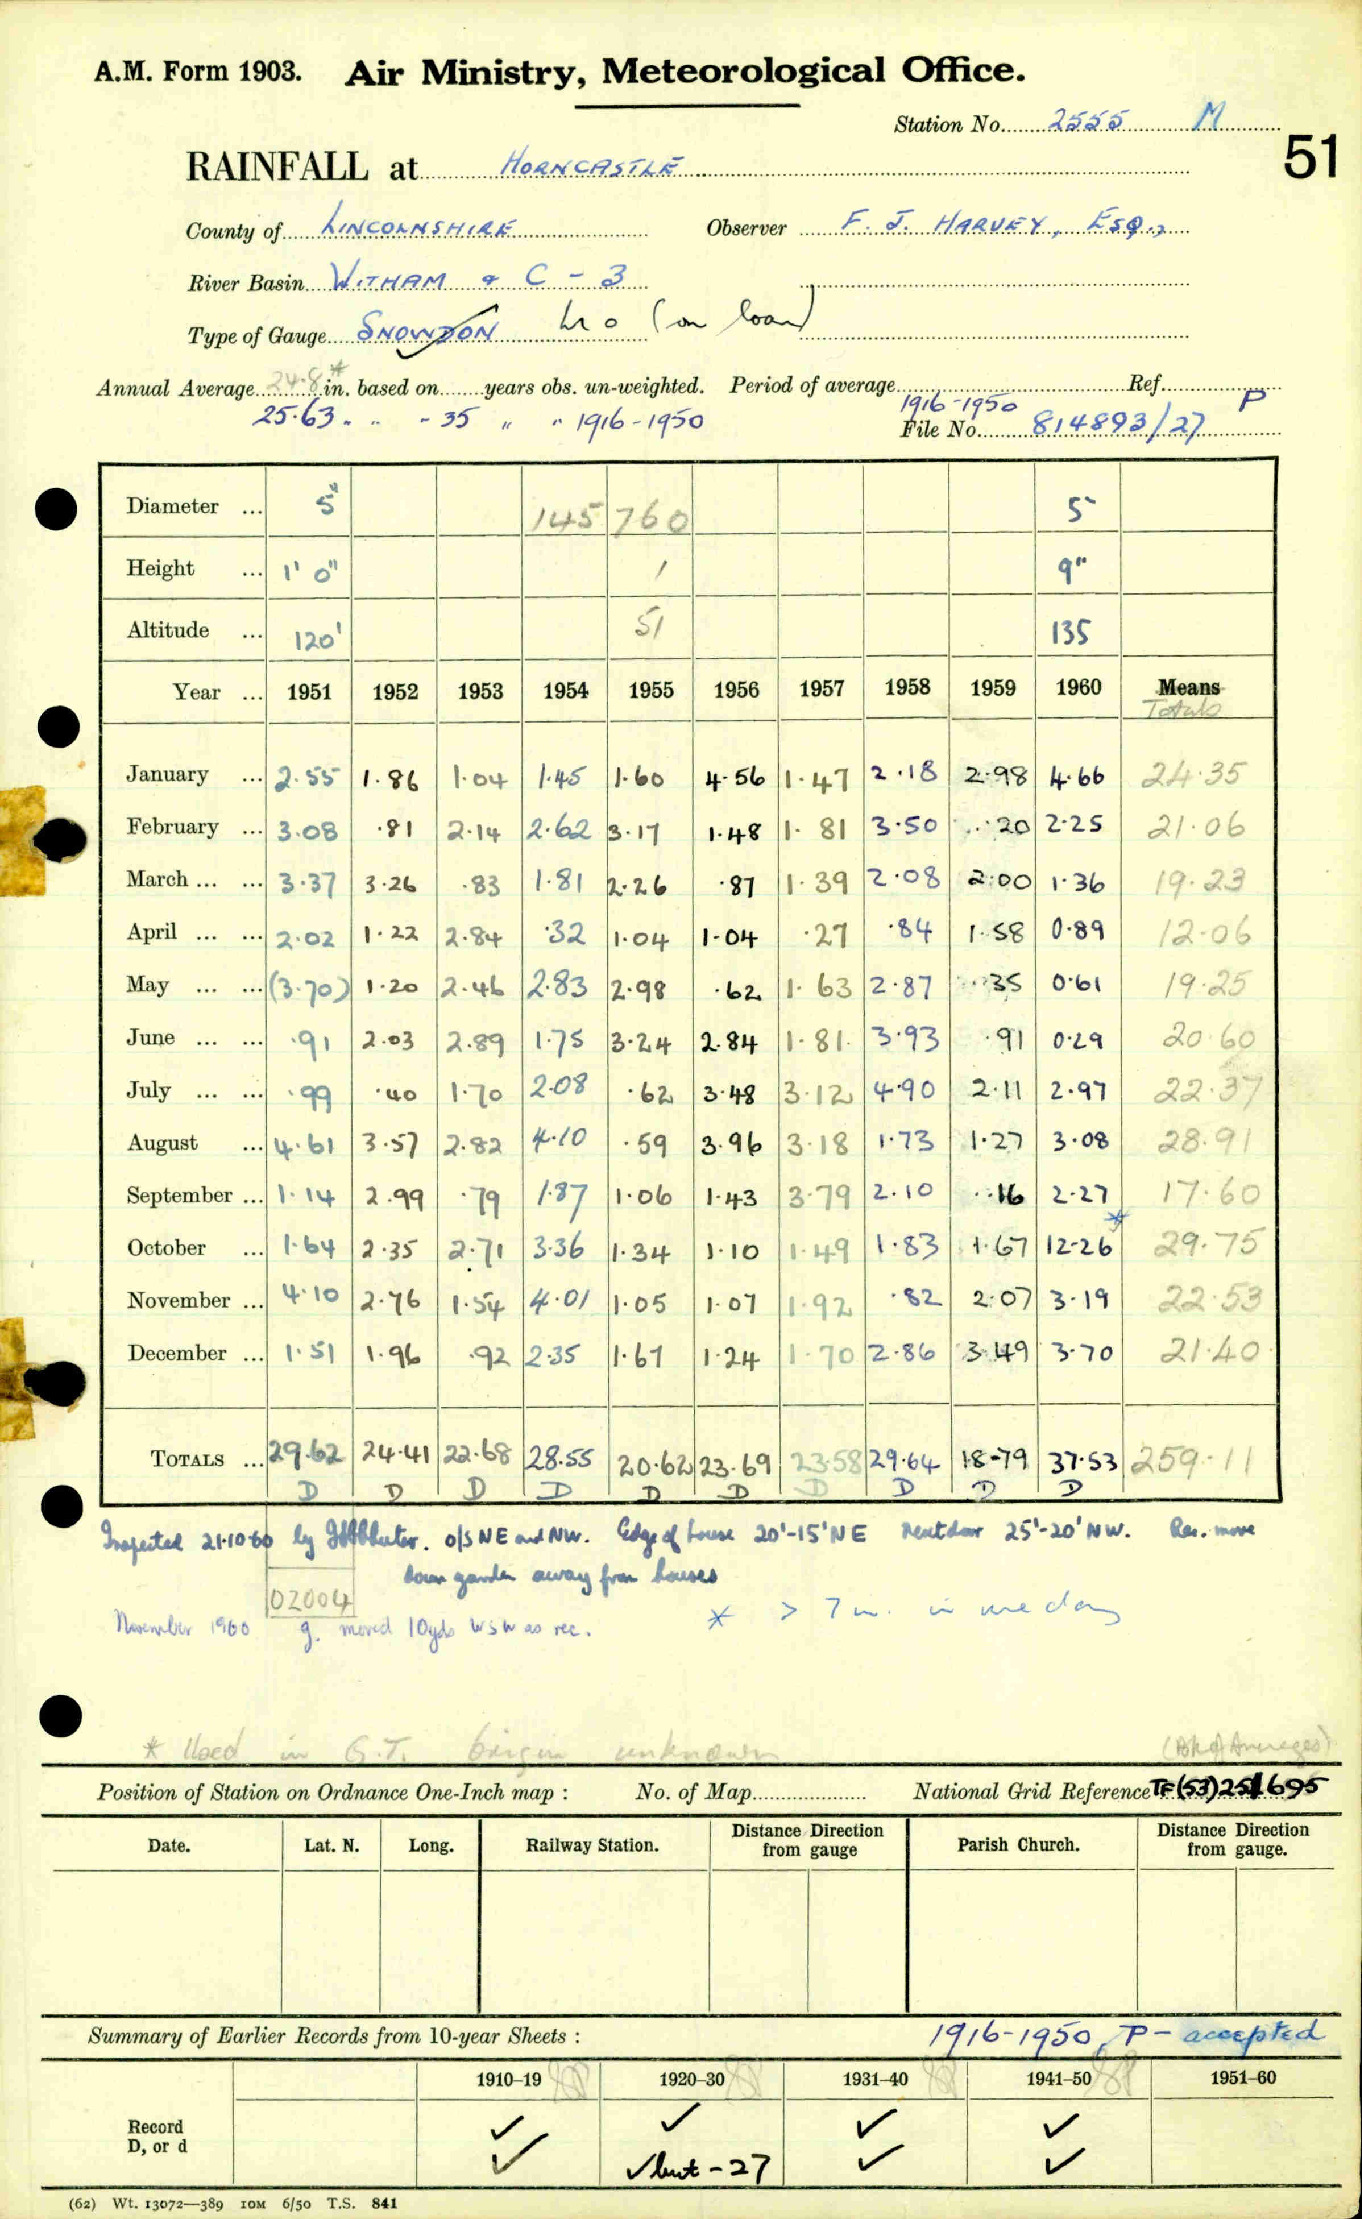 A.M. Form 1903. Air Ministry, Meteorological Office.
Station No. 2555 M
51
RAINFALL at HORNCASTLE
County of LINCOLNSHIRE Observer F. J. HARVEY, ESQ.,
River Basin WITHAM & C - 3
Type of Gauge SNOWDON M O (on loan)
Annual Average 24.8* in. based on years obs. un-weighted. Period of average 1916-1950 Ref. P
25.63 " " - 35 " " 1916-1950 File No. 814893/27
Diameter ... 5" 145 760 5"
Height ... 1' 0" 1 9"
Altitude ... 120' 51 135
Year ... 1951 1952 1953 1954 1955 1956 1957 1958 1959 1960 Means
Totals
January ... 2.55 1.86 1.04 1.45 1.60 4.56 1.47 2.18 2.98 4.66 24.35
February ... 3.08 .81 2.14 2.62 3.17 1.48 1.81 3.50 .20 2.25 21.06
March ... ... 3.37 3.26 .83 1.81 2.26 .87 1.39 2.08 2.00 1.36 19.23
April ... ... 2.02 1.22 2.84 .32 1.04 1.04 .27 .84 1.58 0.89 12.06
May ... ... (3.70) 1.20 2.46 2.83 2.98 .62 1.63 2.87 .35 0.61 19.25
June ... ... .91 2.03 2.89 1.75 3.24 2.84 1.81 3.93 .91 0.29 20.60
July ... ... .99 .40 1.70 2.08 .62 3.48 3.12 4.90 2.11 2.97 22.37
August ... 4.61 3.57 2.82 4.10 .59 3.96 3.18 1.73 1.27 3.08 28.91
September ... 1.14 2.99 .79 1.87 1.06 1.43 3.79 2.10 .16 2.27 17.60
October ... 1.64 2.35 2.71 3.36 1.34 1.10 1.49 1.83 1.67 12.26* 29.75
November ... 4.10 2.76 1.54 4.01 1.05 1.07 1.92 .82 2.07 3.19 22.53
December ... 1.51 1.96 .92 2.35 1.67 1.24 1.70 2.86 3.49 3.70 21.40
TOTALS ... 29.62 24.41 22.68 28.55 20.62 23.69 23.58 29.64 18.79 37.53 259.11
D D D D D D D D D D
Inspected 21.10.60 by o/s NE and NW. Edge of house 20'-15' NE next door 25'-20' NW. Rec. move
down garden away from houses
02004
November 1960 g. moved 10yds WSW as rec.
* > 7 in. in one day
* Used in G.T. Origin unknown (Bk of Averages)
Position of Station on Ordnance One-Inch map : No. of Map National Grid Reference TF(53)251695
Date. Lat. N. Long. Railway Station. Distance Direction from gauge Parish Church. Distance Direction from gauge.
Summary of Earlier Records from 10-year Sheets : 1916-1950, P - accepted
1910-19 1920-30 1931-40 1941-50 1951-60
Record ✓ ✓ ✓ ✓
D, or d ✓ ✓ but - 27 ✓ ✓
(62) Wt. 13072—389 10M 6/50 T.S. 841